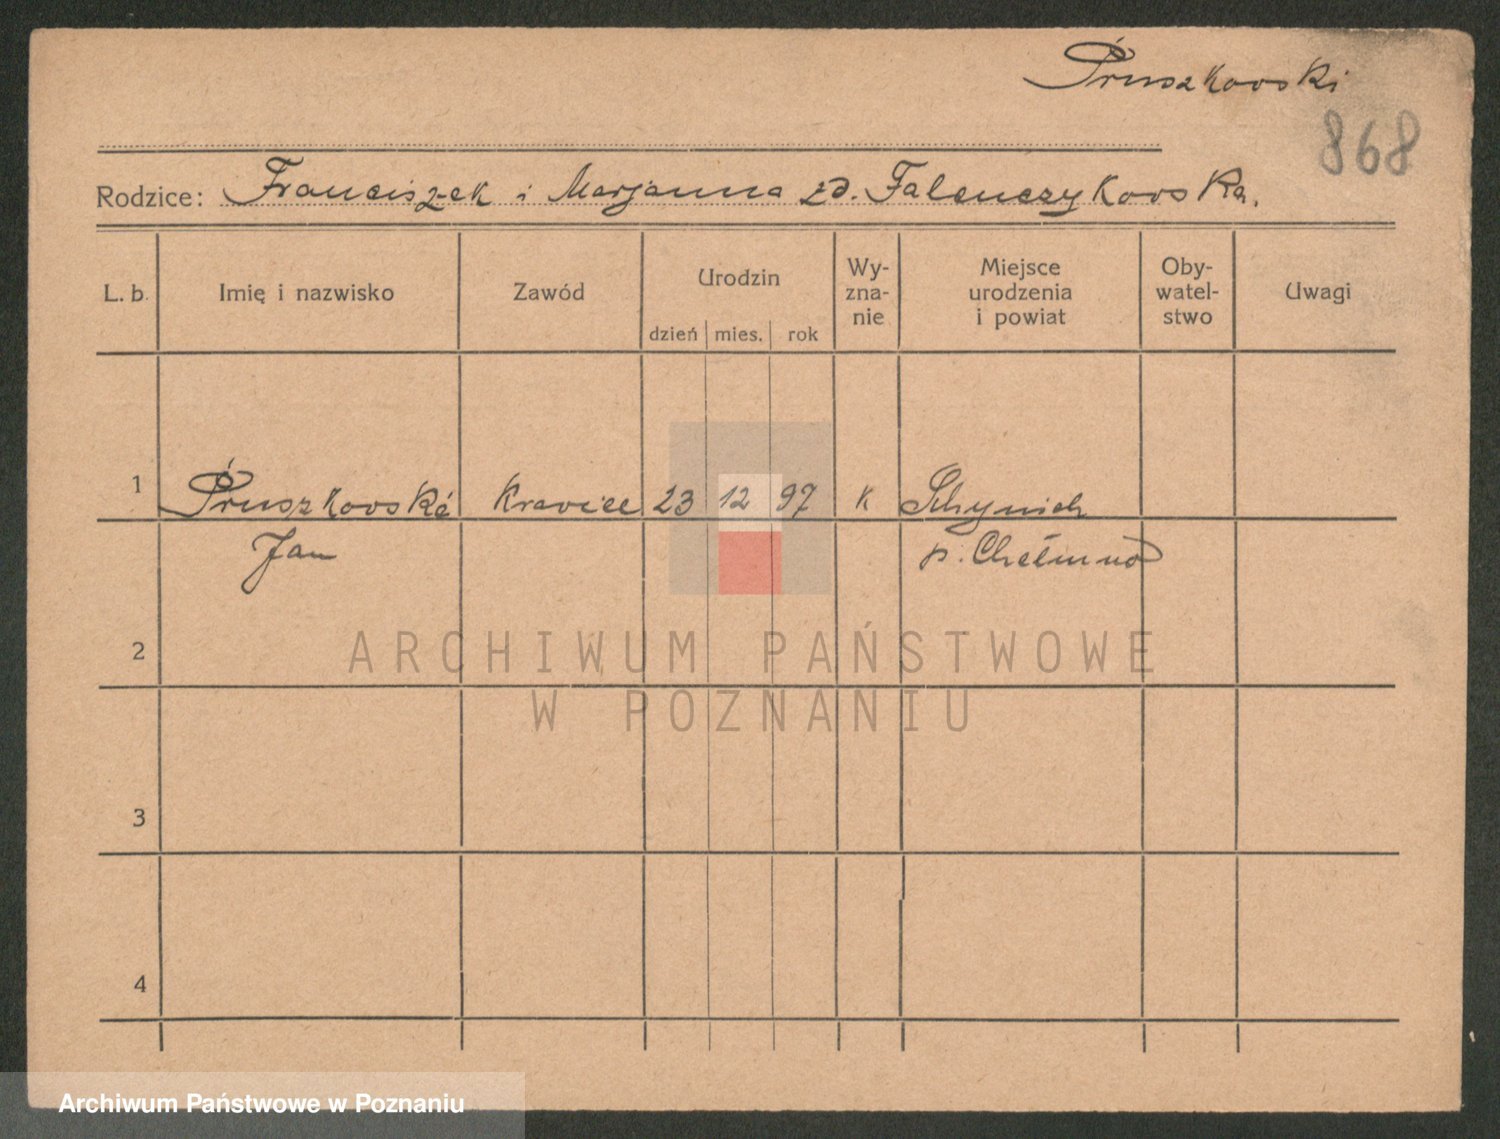 Pruszkowski
868
Rodzice: Franciszek i Marjanna zd. Falenczykowska.
L. b. Imię i nazwisko Zawód Urodzin dzień mies. rok Wy-zna-nie Miejsce urodzenia i powiat Oby-watel-stwo Uwagi
1 Pruszkowski krawiec 23 12 97 k
Jan p. Chełmno
2
3
4
ARCHIWUM PAŃSTWOWE
W POZNANIU
Archiwum Państwowe w Poznaniu